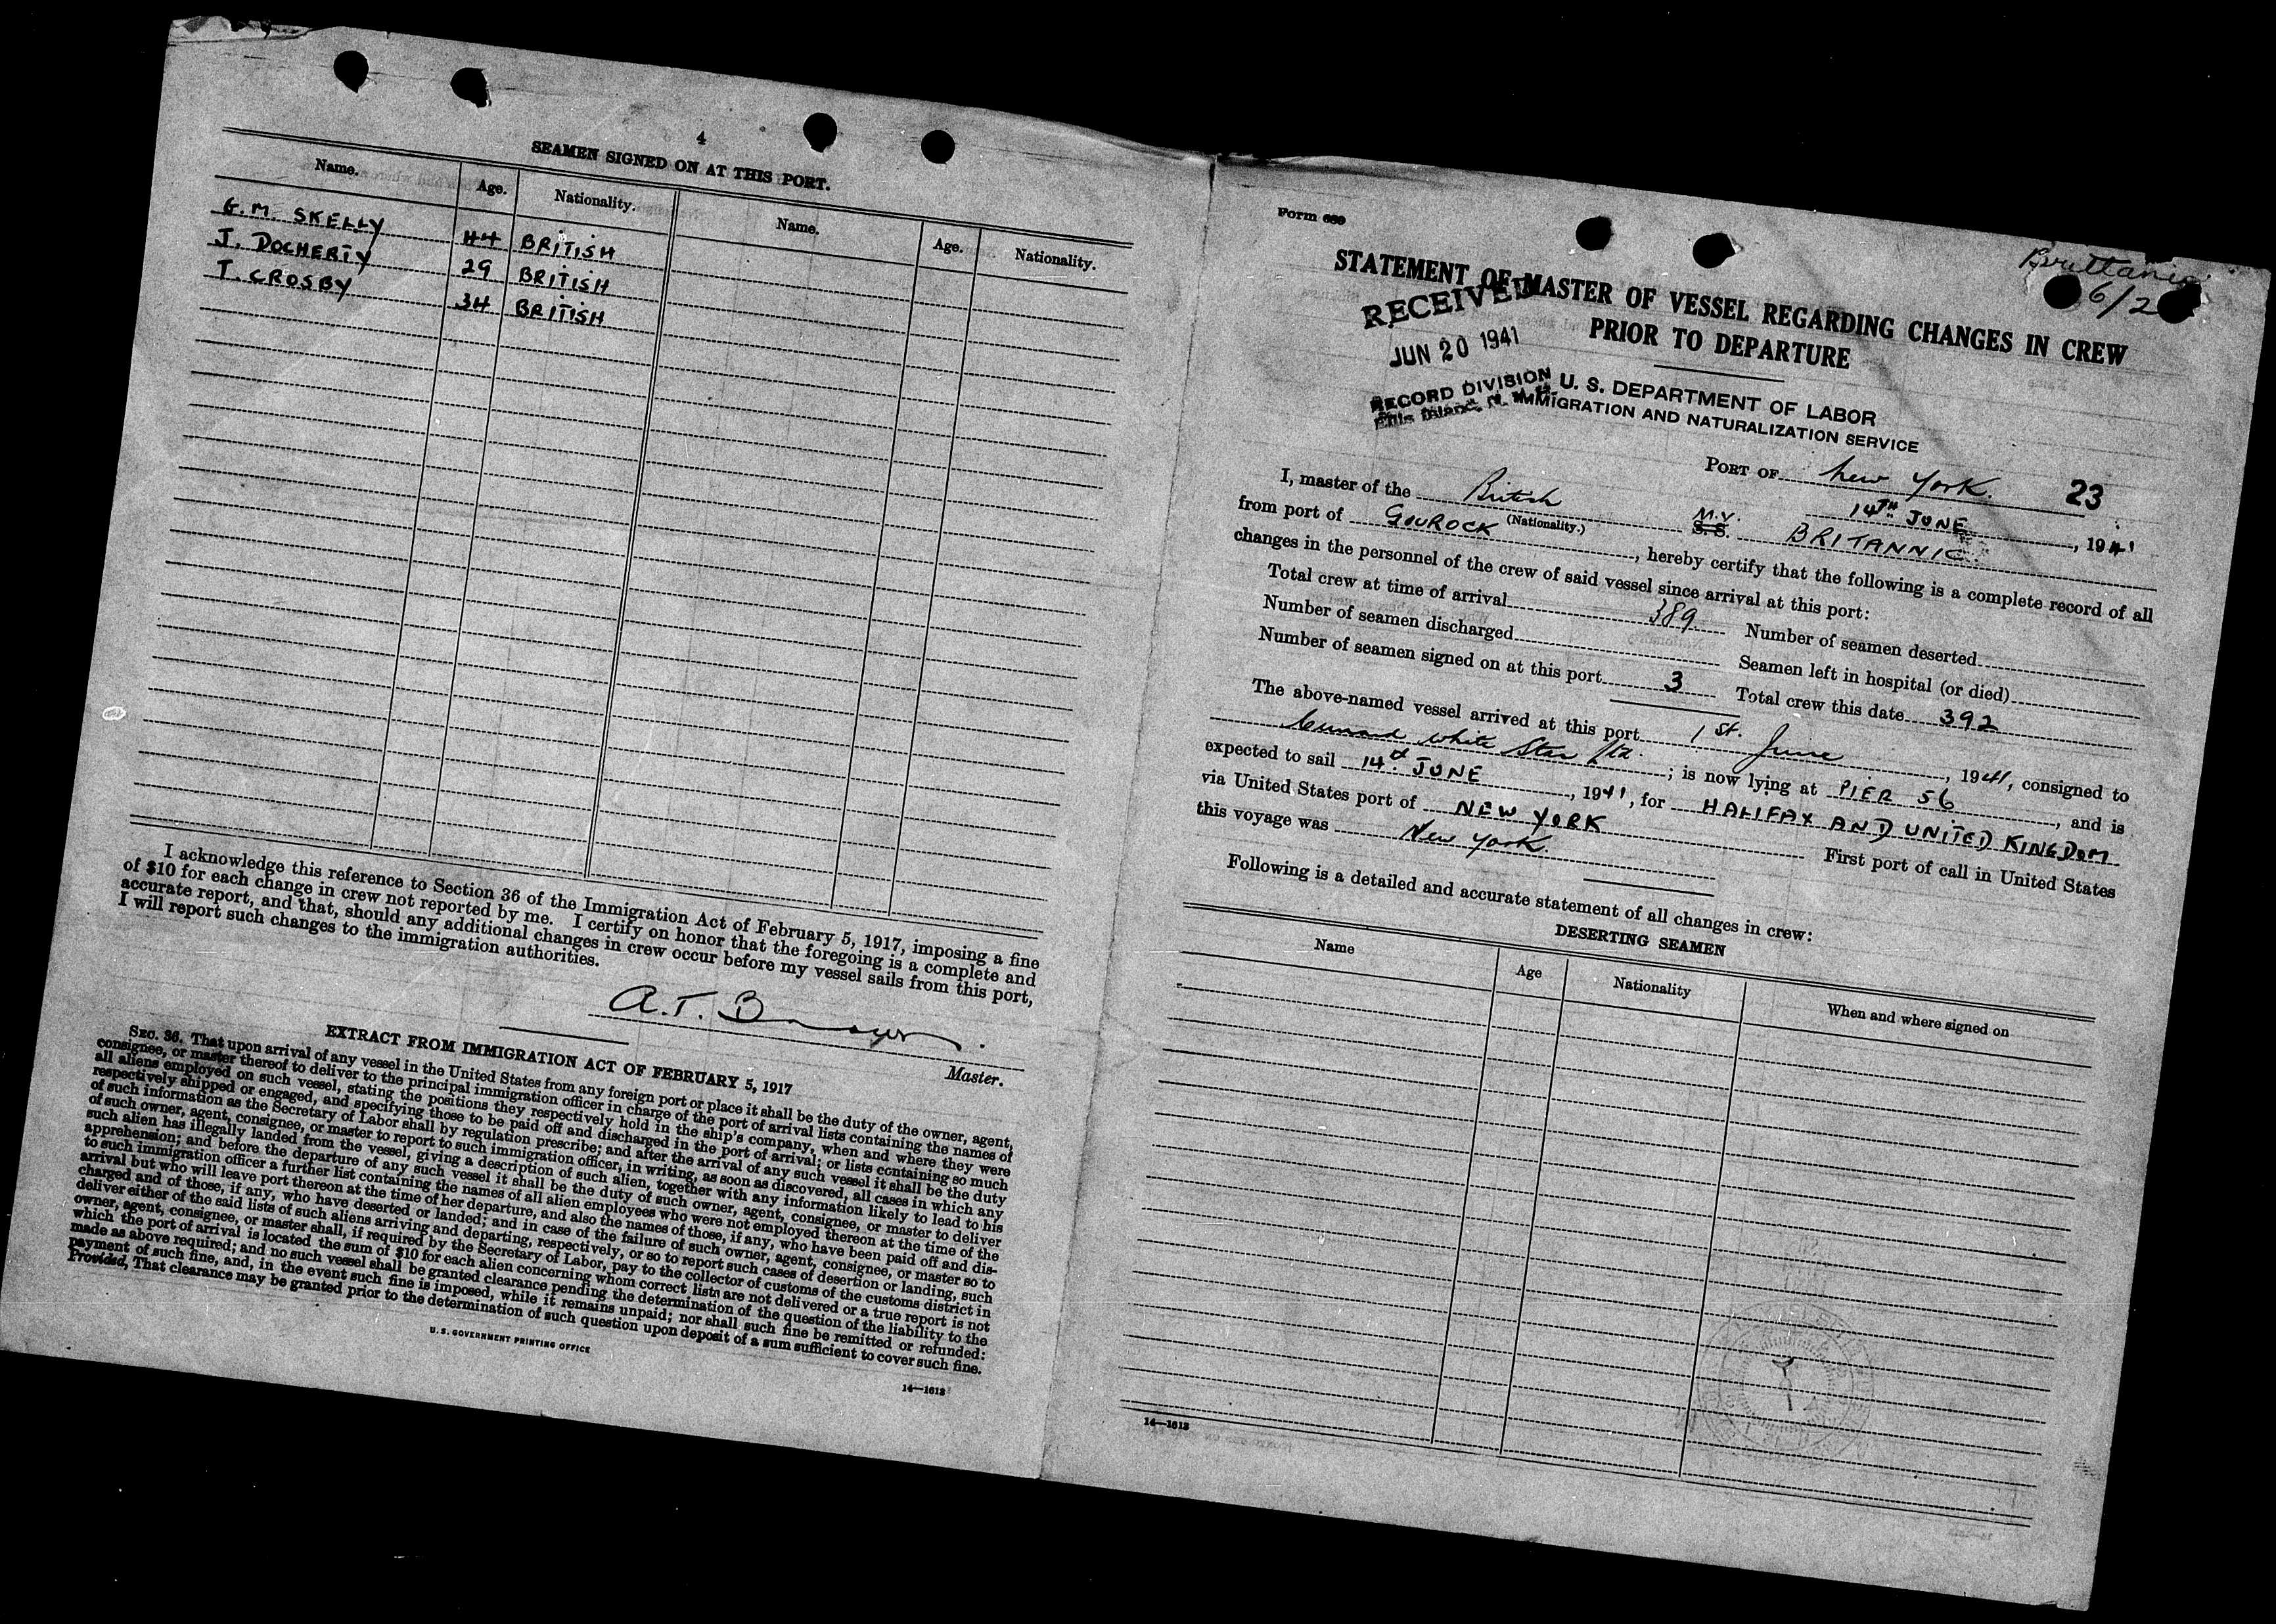 4
SEAMEN SIGNED ON AT THIS PORT.
Name. Age. Nationality. Name. Age. Nationality.
G.M. SKELLY 44 BRITISH
J. DOCHERTY 29 BRITISH
T. CROSBY 34 BRITISH
I acknowledge this reference to Section 36 of the Immigration Act of February 5, 1917, imposing a fine
of $10 for each change in crew not reported by me. I certify on honor that the foregoing is a complete and
accurate report, and that, should any additional changes in crew occur before my vessel sails from this port,
I will report such changes to the immigration authorities.
A.T. B
Master.
EXTRACT FROM IMMIGRATION ACT OF FEBRUARY 5, 1917
SEC. 36. That upon arrival of any vessel in the United States from any foreign port or place it shall be the duty of the owner, agent,
consignee, or master thereof to deliver to the principal immigration officer in charge of the port of arrival lists containing the names of
all aliens employed on such vessel, stating the positions they respectively hold in the ship's company, when and where they were
respectively shipped or engaged, and specifying those to be paid off and discharged in the port of arrival; or lists containing so much
of such information as the Secretary of Labor shall by regulation prescribe; and after the arrival of any such vessel it shall be the duty
of such owner, agent, consignee, or master to report to such immigration officer, in writing, as soon as discovered, all cases in which any
such alien has illegally landed from the vessel, giving a description of such alien, together with any information likely to lead to his
apprehension; and before the departure of any such vessel it shall be the duty of such owner, agent, consignee, or master to deliver
to such immigration officer a further list containing the names of all alien employees who were not employed thereon at the time of the
arrival but who will leave port thereon at the time of her departure, and also the names of those, if any, who have been paid off and dis-
charged and of those, if any, who have deserted or landed; and in case of the failure of such owner, agent, consignee, or master so to
deliver either of the said lists of such aliens arriving and departing, respectively, or so to report such cases of desertion or landing, such
owner, agent, consignee, or master shall, if required by the Secretary of Labor, pay to the collector of customs of the customs district in
which the port of arrival is located the sum of $10 for each alien concerning whom correct lists are not delivered or a true report is not
made as above required; and no such vessel shall be granted clearance pending the determination of the question of the liability to the
payment of such fine, and, in the event such fine is imposed, while it remains unpaid; nor shall such fine be remitted or refunded:
Provided, That clearance may be granted prior to the determination of such question upon deposit of a sum sufficient to cover such fine.
U.S. GOVERNMENT PRINTING OFFICE
14—1613
Form 680
Bruttanic
6/2
STATEMENT OF MASTER OF VESSEL REGARDING CHANGES IN CREW
PRIOR TO DEPARTURE
RECEIVED
JUN 20 1941
RECORD DIVISION
Ellis Island, N. Y. H.
U. S. DEPARTMENT OF LABOR
IMMIGRATION AND NATURALIZATION SERVICE
PORT OF New York. 23
14TH JUNE, 1941
I, master of the British M.V. S.S. BRITANNIC
(Nationality.)
from port of GOUROCK, hereby certify that the following is a complete record of all
changes in the personnel of the crew of said vessel since arrival at this port:
Total crew at time of arrival 389 Number of seamen deserted
Number of seamen discharged Seamen left in hospital (or died)
Number of seamen signed on at this port 3 Total crew this date 392
The above-named vessel arrived at this port 1st. June, 1941, consigned to
Cunard White Star Ltd.; is now lying at PIER 56, and is
expected to sail 14th JUNE, 1941, for HALIFAX AND UNITED KINGDOM
via United States port of NEW YORK First port of call in United States
this voyage was New York.
Following is a detailed and accurate statement of all changes in crew:
DESERTING SEAMEN
Name Age Nationality When and where signed on
14—1613